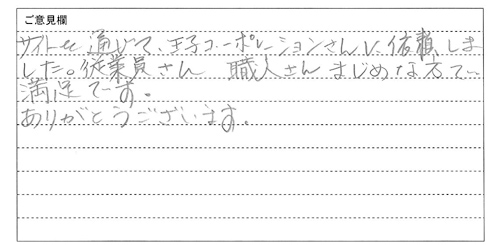 ご意見欄
サイトを通じて、王子コーポレーションさんに依頼しま
した。従業員さん 職人さんまじめな方で
満足です。
ありがとうございます。